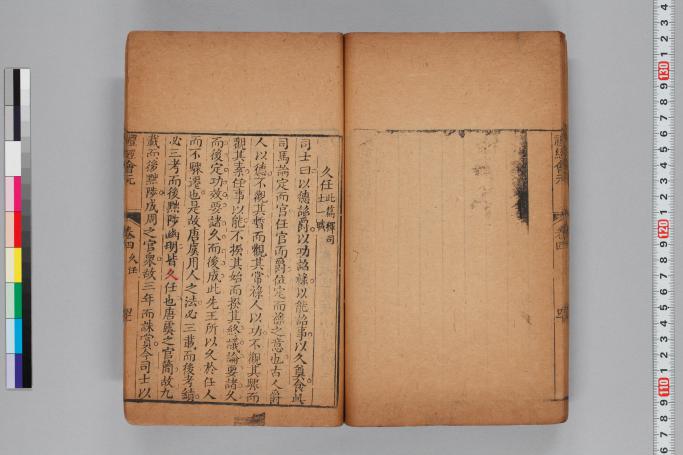 久任 此篇釋司士一職
司士曰以德詔爵以功詔祿以能詔事以久奠食此
司馬論定而官任官而爵位定而祿之意也古人爵
人以德不觀其暫而觀其常祿人以功不觀其驟而
觀其素任事以能不揆其始而揆其終議論要諸久
而後定功效要諸久而後成此先王所以久於任人
而不驟遷也是故唐虞用人之法必三載而後考績
必三考而後黜陟幽明皆久任也唐虞之官簡故九
載而後黜陟成周之官衆故三年而誅賞今司士以
禮經會元
卷四 久任
禮經會元
卷四
130
120
110